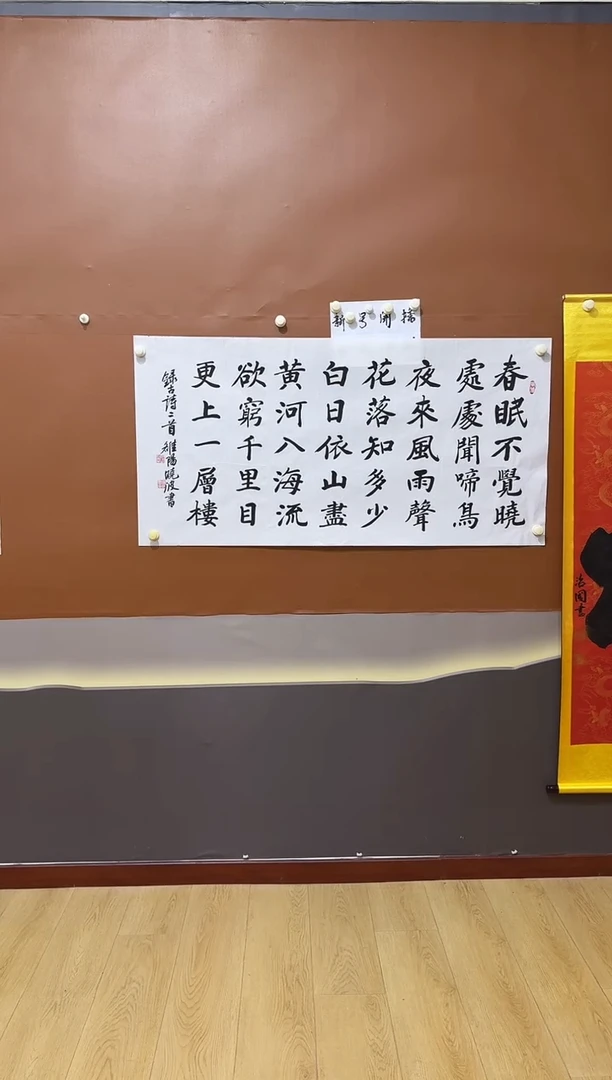 新号開播
春眠不覺曉
處處聞啼鳥
夜來風雨聲
花落知多少
白日依山盡
黃河入海流
欲窮千里目
更上一層樓
錄古詩二首 陽曉波書
國書